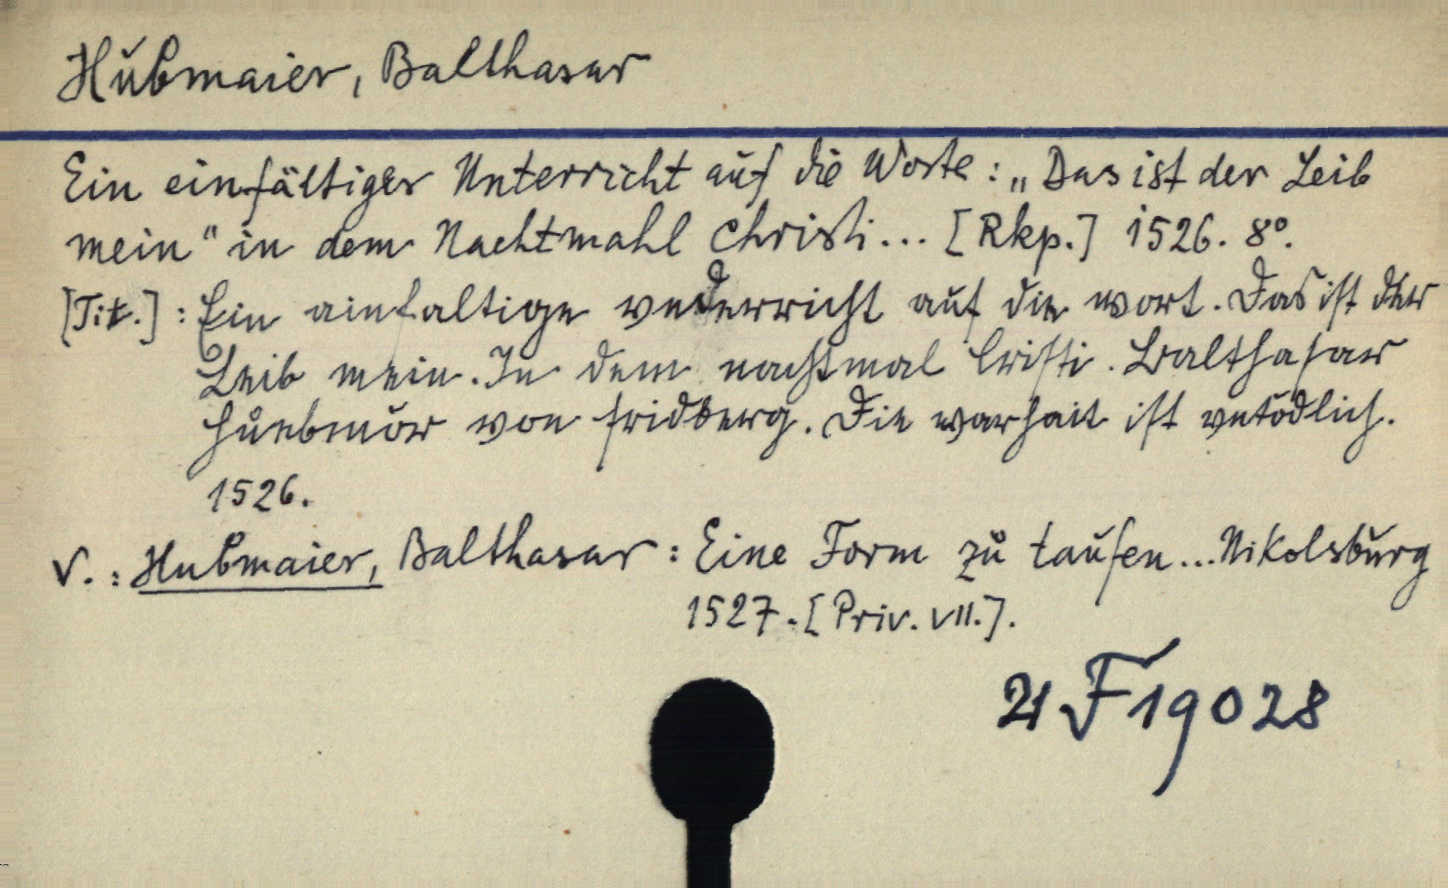 Hubmaier, Balthasar
Ein einfältiger Unterricht auf die Worte: „Das ist der Leib
mein" in dem Nachtmahl Christi... [Rkp.] 1526. 8°.
[Tit.]: Ein ainfaltige vnderricht auf die wort. Das ist der
Leib mein. In dem nachtmal Cristi. Balthasar
Hůebmör von fridberg. Die warhait ist vntödlich.
1526.
V.: Hubmaier, Balthasar: Eine Form zů taufen...Nikolsburg
1527.[Priv. VII.].
21 F 19028